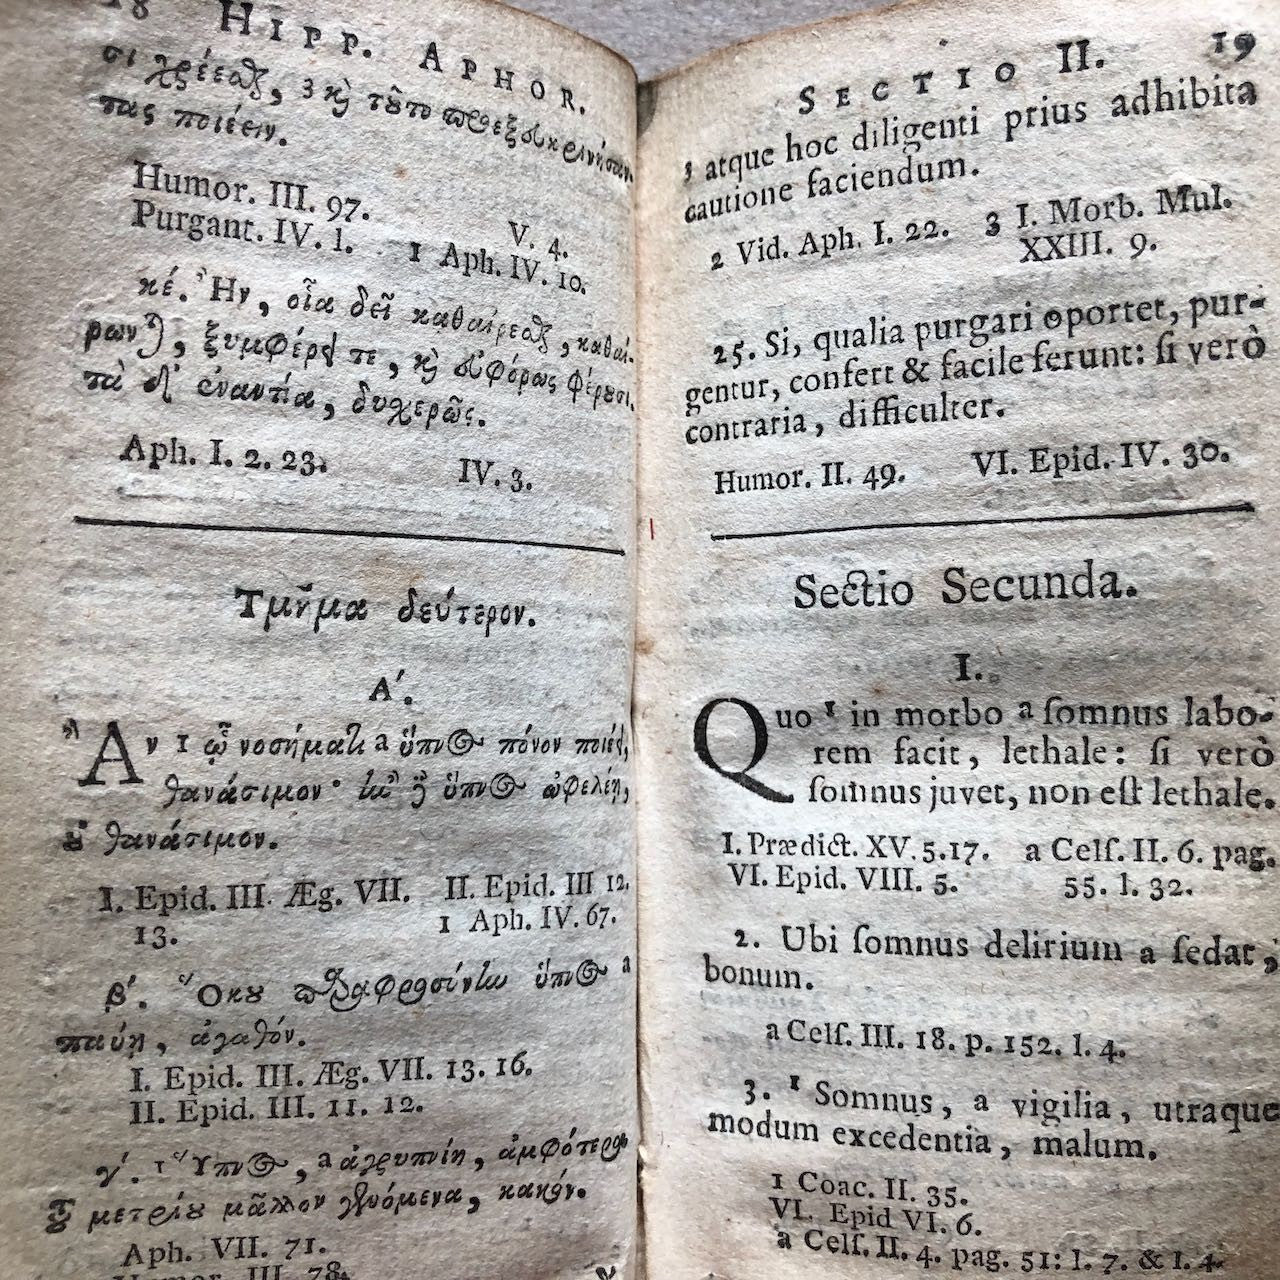 18 HIPP. APHOR.
σι χρέεσθαι, 3 καὶ τοῦτο προεξευκρινήσαν-
τας ποιέειν.
Humor. III. 97. V. 4.
Purgant. IV. 1. 1 Aph. IV. 10.
κέ. Ἢν, οἷα δεῖ καθαίρεσθαι, καθαί-
ρωνται, ξυμφέρει τε, καὶ εὐφόρως φέρουσι.
τὰ δ' ἐναντία, δυχερῶς.
Aph. I. 2. 23. IV. 3.
Τμῆμα δεύτερον.
Α´.
Ἂν 1 ᾧ νοσήματι a ὕπνος πόνον ποιέει,
θανάσιμον· ἢν δὲ ὕπνος ὠφελέῃ,
οὐ θανάσιμον.
I. Epid. III. Æg. VII. II. Epid. III 12.
13. 1 Aph. IV. 67.
β´. Ὅκου παραφροσύνην ὕπνος a
παύῃ, ἀγαθόν.
I. Epid. III. Æg. VII. 13. 16.
II. Epid. III. 11. 12.
γ´. 1 Ὕπνος, a ἀγρυπνίη, ἀμφότερα
τοῦ μετρίου μᾶλλον γενόμενα, κακόν.
Aph. VII. 71.
Humor. III. 78.
SECTIO II. 19
3 atque hoc diligenti prius adhibita
cautione faciendum.
2 Vid. Aph. I. 22. 3 I. Morb. Mul.
XXIII. 9.
25. Si, qualia purgari oportet, pur-
gentur, confert & facile ferunt: ſi verò
contraria, difficulter.
Humor. II. 49. VI. Epid. IV. 30.
Sectio Secunda.
I.
Quo 1 in morbo a ſomnus labo-
rem facit, lethale: ſi verò
ſomnus juvet, non eſt lethale.
I. Prædict. XV. 5. 17. a Celſ. II. 6. pag.
VI. Epid. VIII. 5. 55. l. 32.
2. Ubi ſomnus delirium a ſedat,
bonum.
a Celſ. III. 18. p. 152. l. 4.
3. 1 Somnus, a vigilia, utraque
modum excedentia, malum.
1 Coac. II. 35.
VI. Epid VI. 6.
a Celſ. II. 4. pag. 51: l. 7. & l. 4.